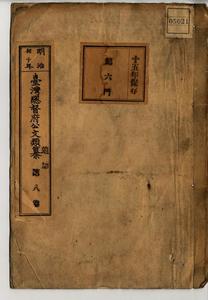 明治
三十年
臺灣總督府公文類纂
追加
第八卷
十五年保存
第六門
05021